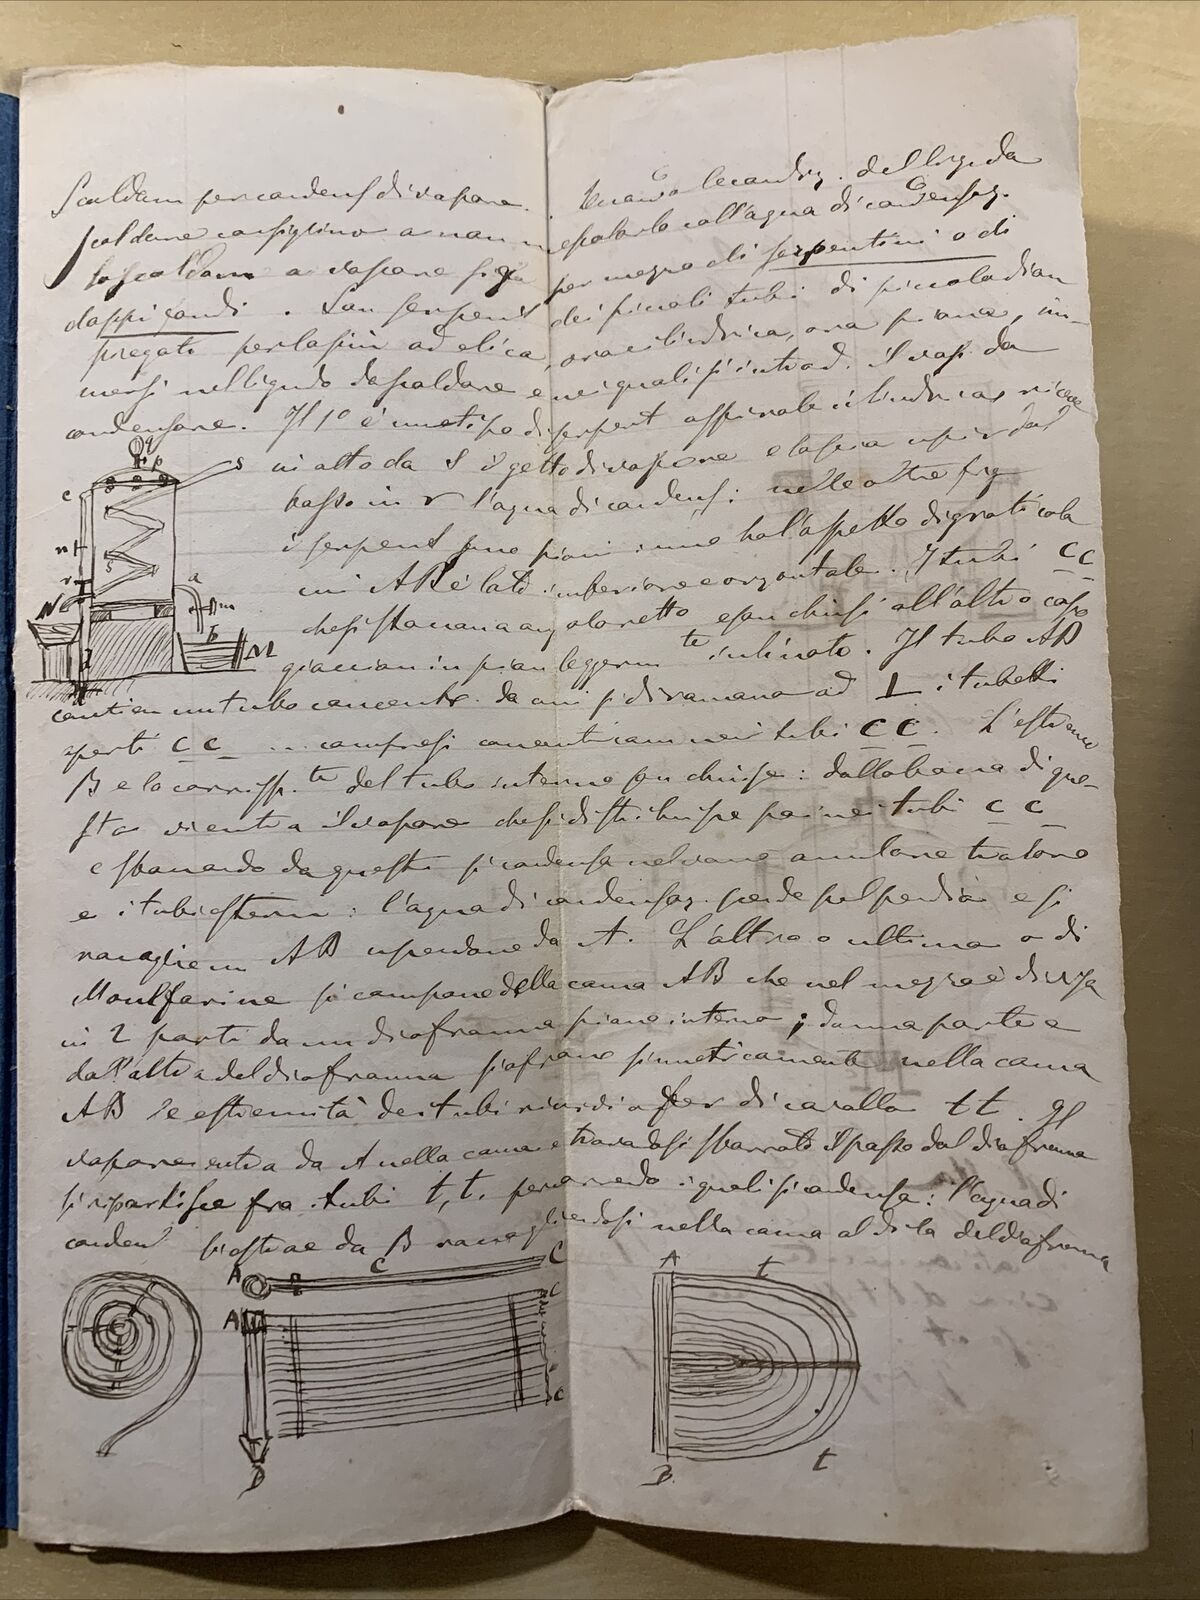 Scaldam per condens di vapore. Quando le condiz. del liq. da
scaldare consiglino a non mescolarlo coll'acqua di condensaz.
lo scaldam a vapore si fa per mezzo di serpentini o di
doppi fondi. I on serpent dei piccoli tubi di piccolo diam
piegati per lo più ad elica, ora cilindrica, ora piana, im-
mersi nel liquido da scaldare e nei quali si introd. il vap. da
condensare. Il 1° è un tipo di serpent a spirale cilindrica riceve
in alto da S il getto di vapore e lascia uscir dal
basso in r l'acqua di condens; nelle altre fig
i serpent sono piani: uno ha l'aspetto di graticola
cui AB è lato inferiore e orizontale. I tubi CC
che si staccan ad angolo retto e son chiusi all'altro capo
giaccion in pian leggerm te inclinato. Il tubo AB
contien un tubo concentr. da cui si diramano ad ⊥ i tubetti
aperti CC compresi nei tubi CC. L'estremo
B e la corrisp. te del tubo interno son chiuse: dalla bocca di que-
sto vient a il vapore che si distribuisce poi nei tubi CC
e sboccando da questi si condensa nel vano anulare tra loro
e i tubi esterni: l'acqua di condensaz. scende pel pendio e si
raccoglie in AB uscendone da A. L'altro o ultimo o di
Montfarine si compone della canna AB che nel mezzo è divisa
in 2 parti da un diaframma piano interno; da una parte e
dall'altra del diaframma s'aprono simetricamente nella canna
AB le estremità dei tubi ricurvi a fer di cavallo tt. Il
vapore entra da A nella canna e trovandosi sbarrato il passo dal diaframma
si ripartisce fra i tubi t,t. percorrendo i quali si condensa: l'acqua di
conden si estrae da B raccogliendosi nella canna al di la del diaframma
q
p
s
c
n
r
N
a
m
b
M
d
A
C
C
A
C
C
B
A
t
B.
t